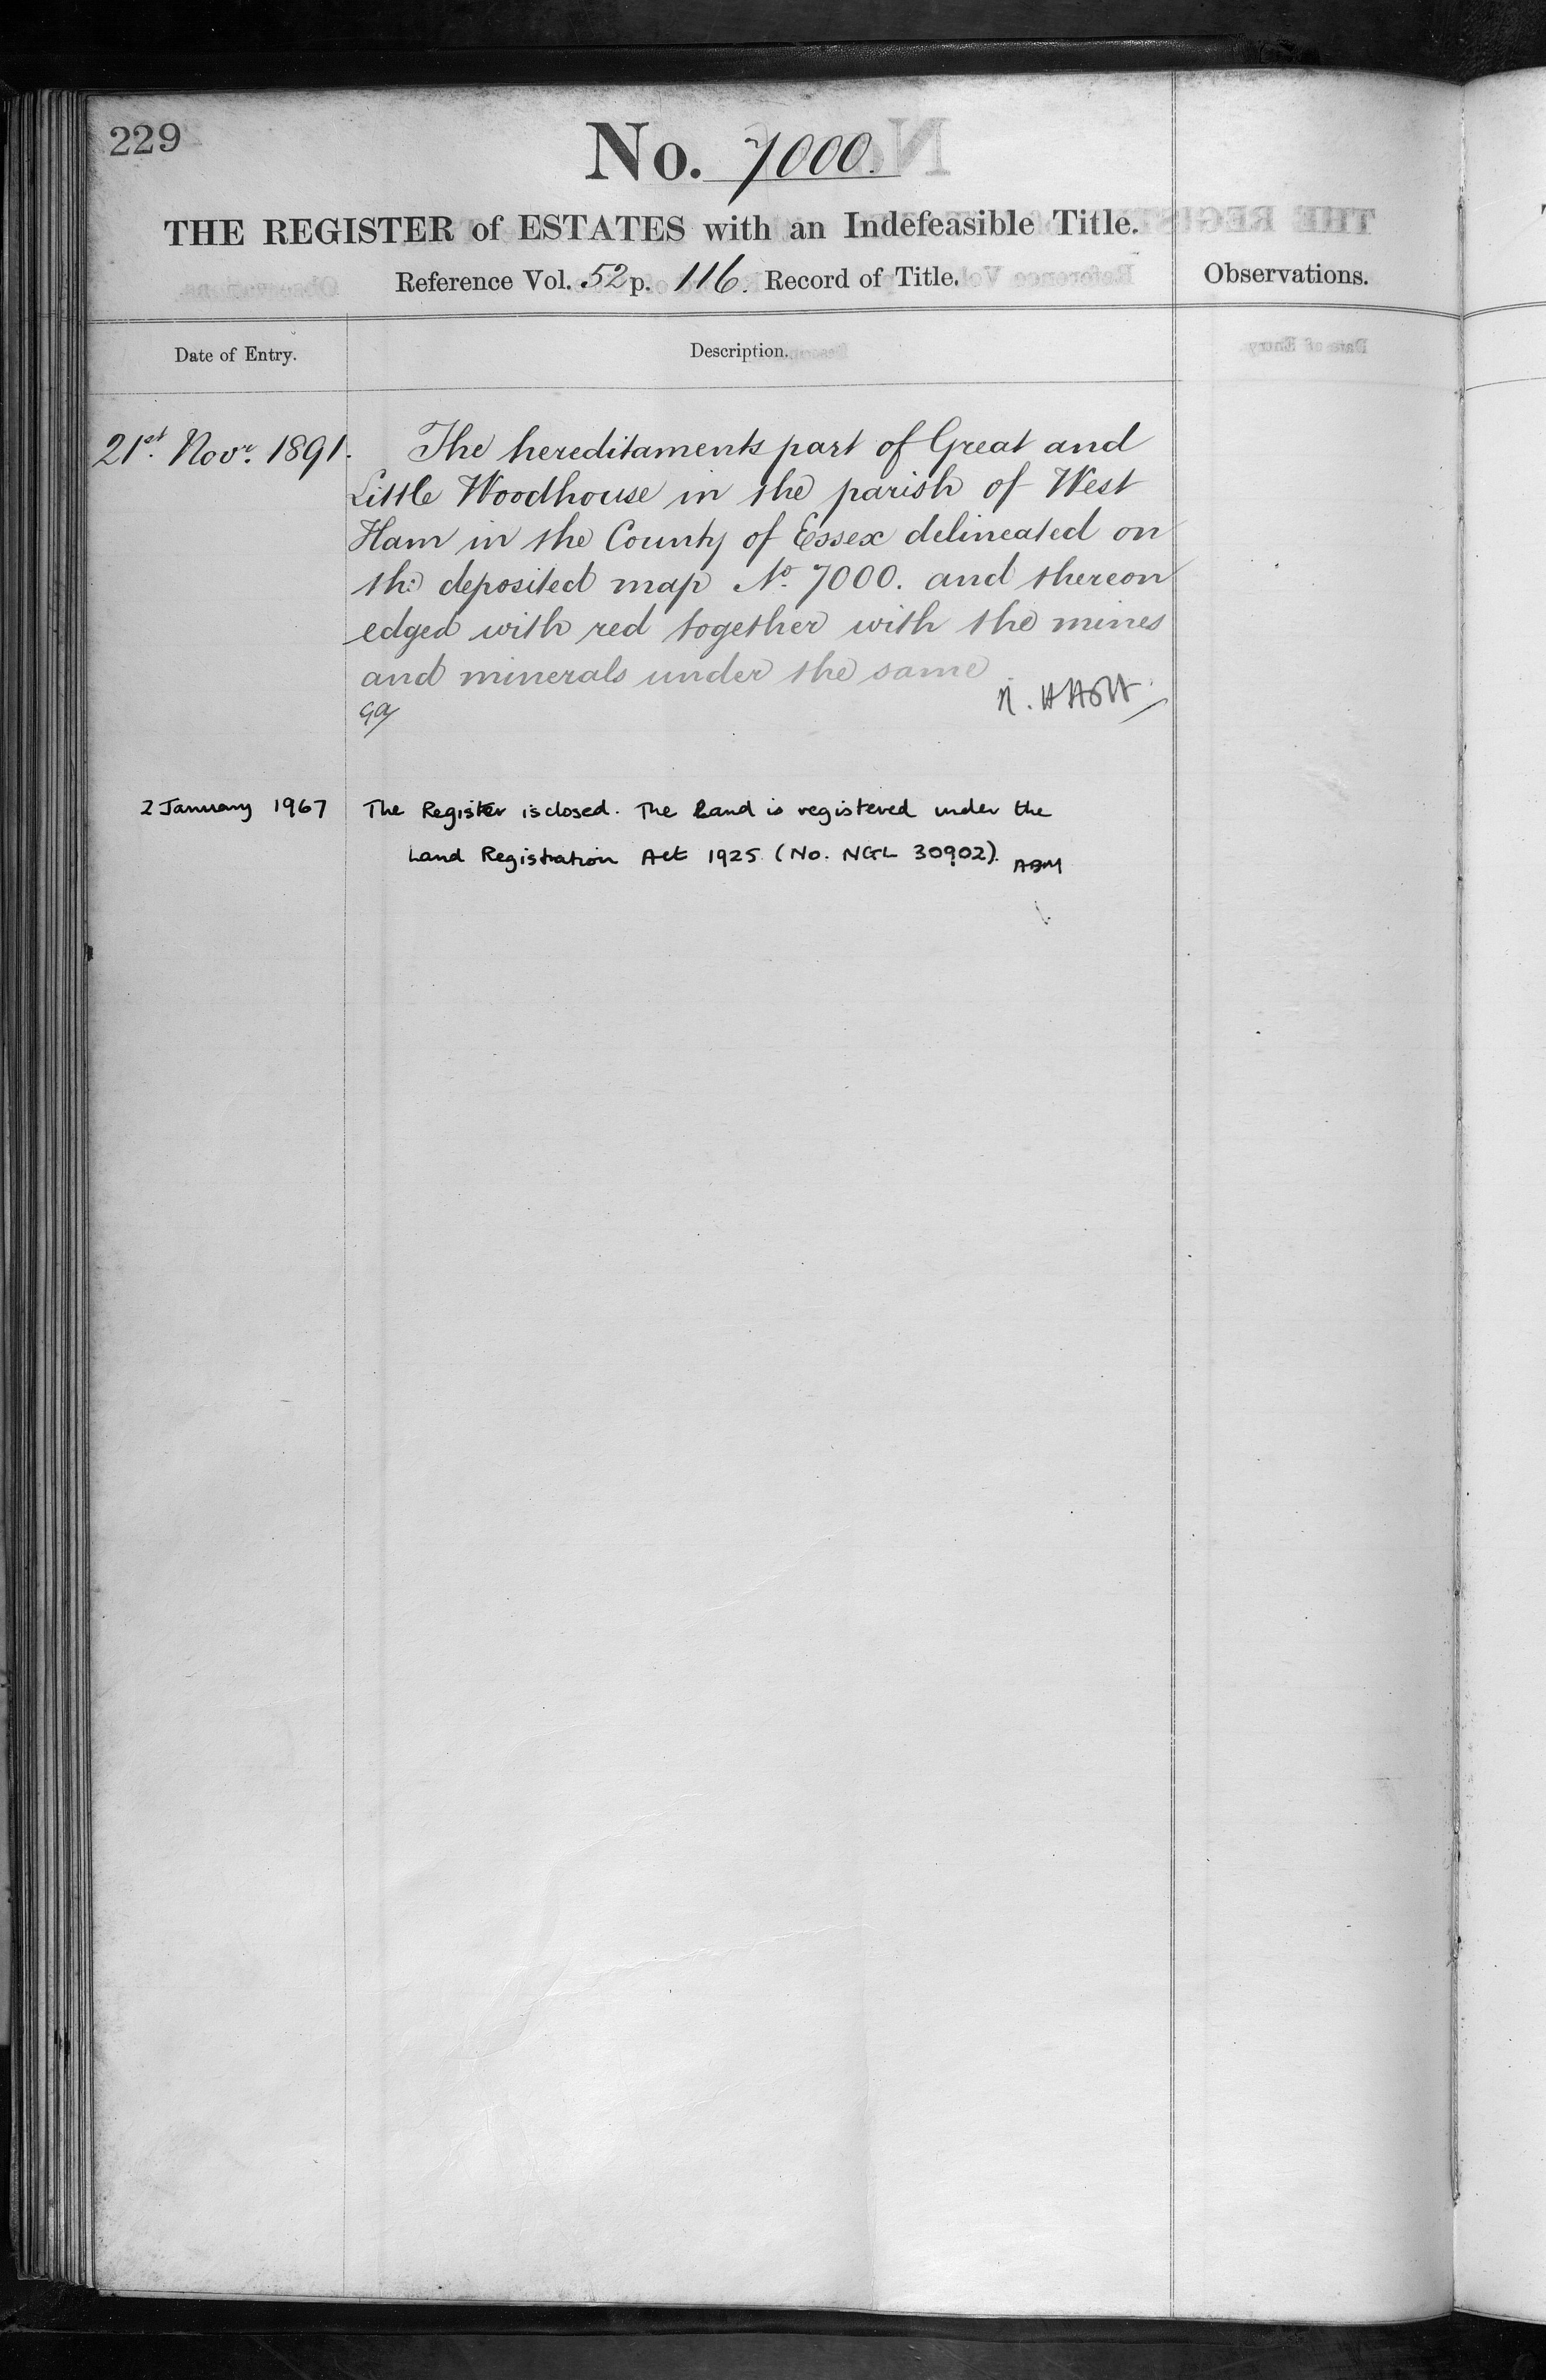 229
No. 7000.
THE REGISTER of ESTATES with an Indefeasible Title.
Reference Vol. 52 p. 116. Record of Title.
Observations.
Date of Entry.
Description.
21st. Novr. 1891.
The hereditaments part of Great and
Little Woodhouse in the parish of West
Ham in the County of Essex delineated on
the deposited map No. 7000. and thereon
edged with red together with the mines
and minerals under the same
2 January 1967
The Register is closed. The Land is registered under the
Land Registration Act 1925 (No. NGL 30902).